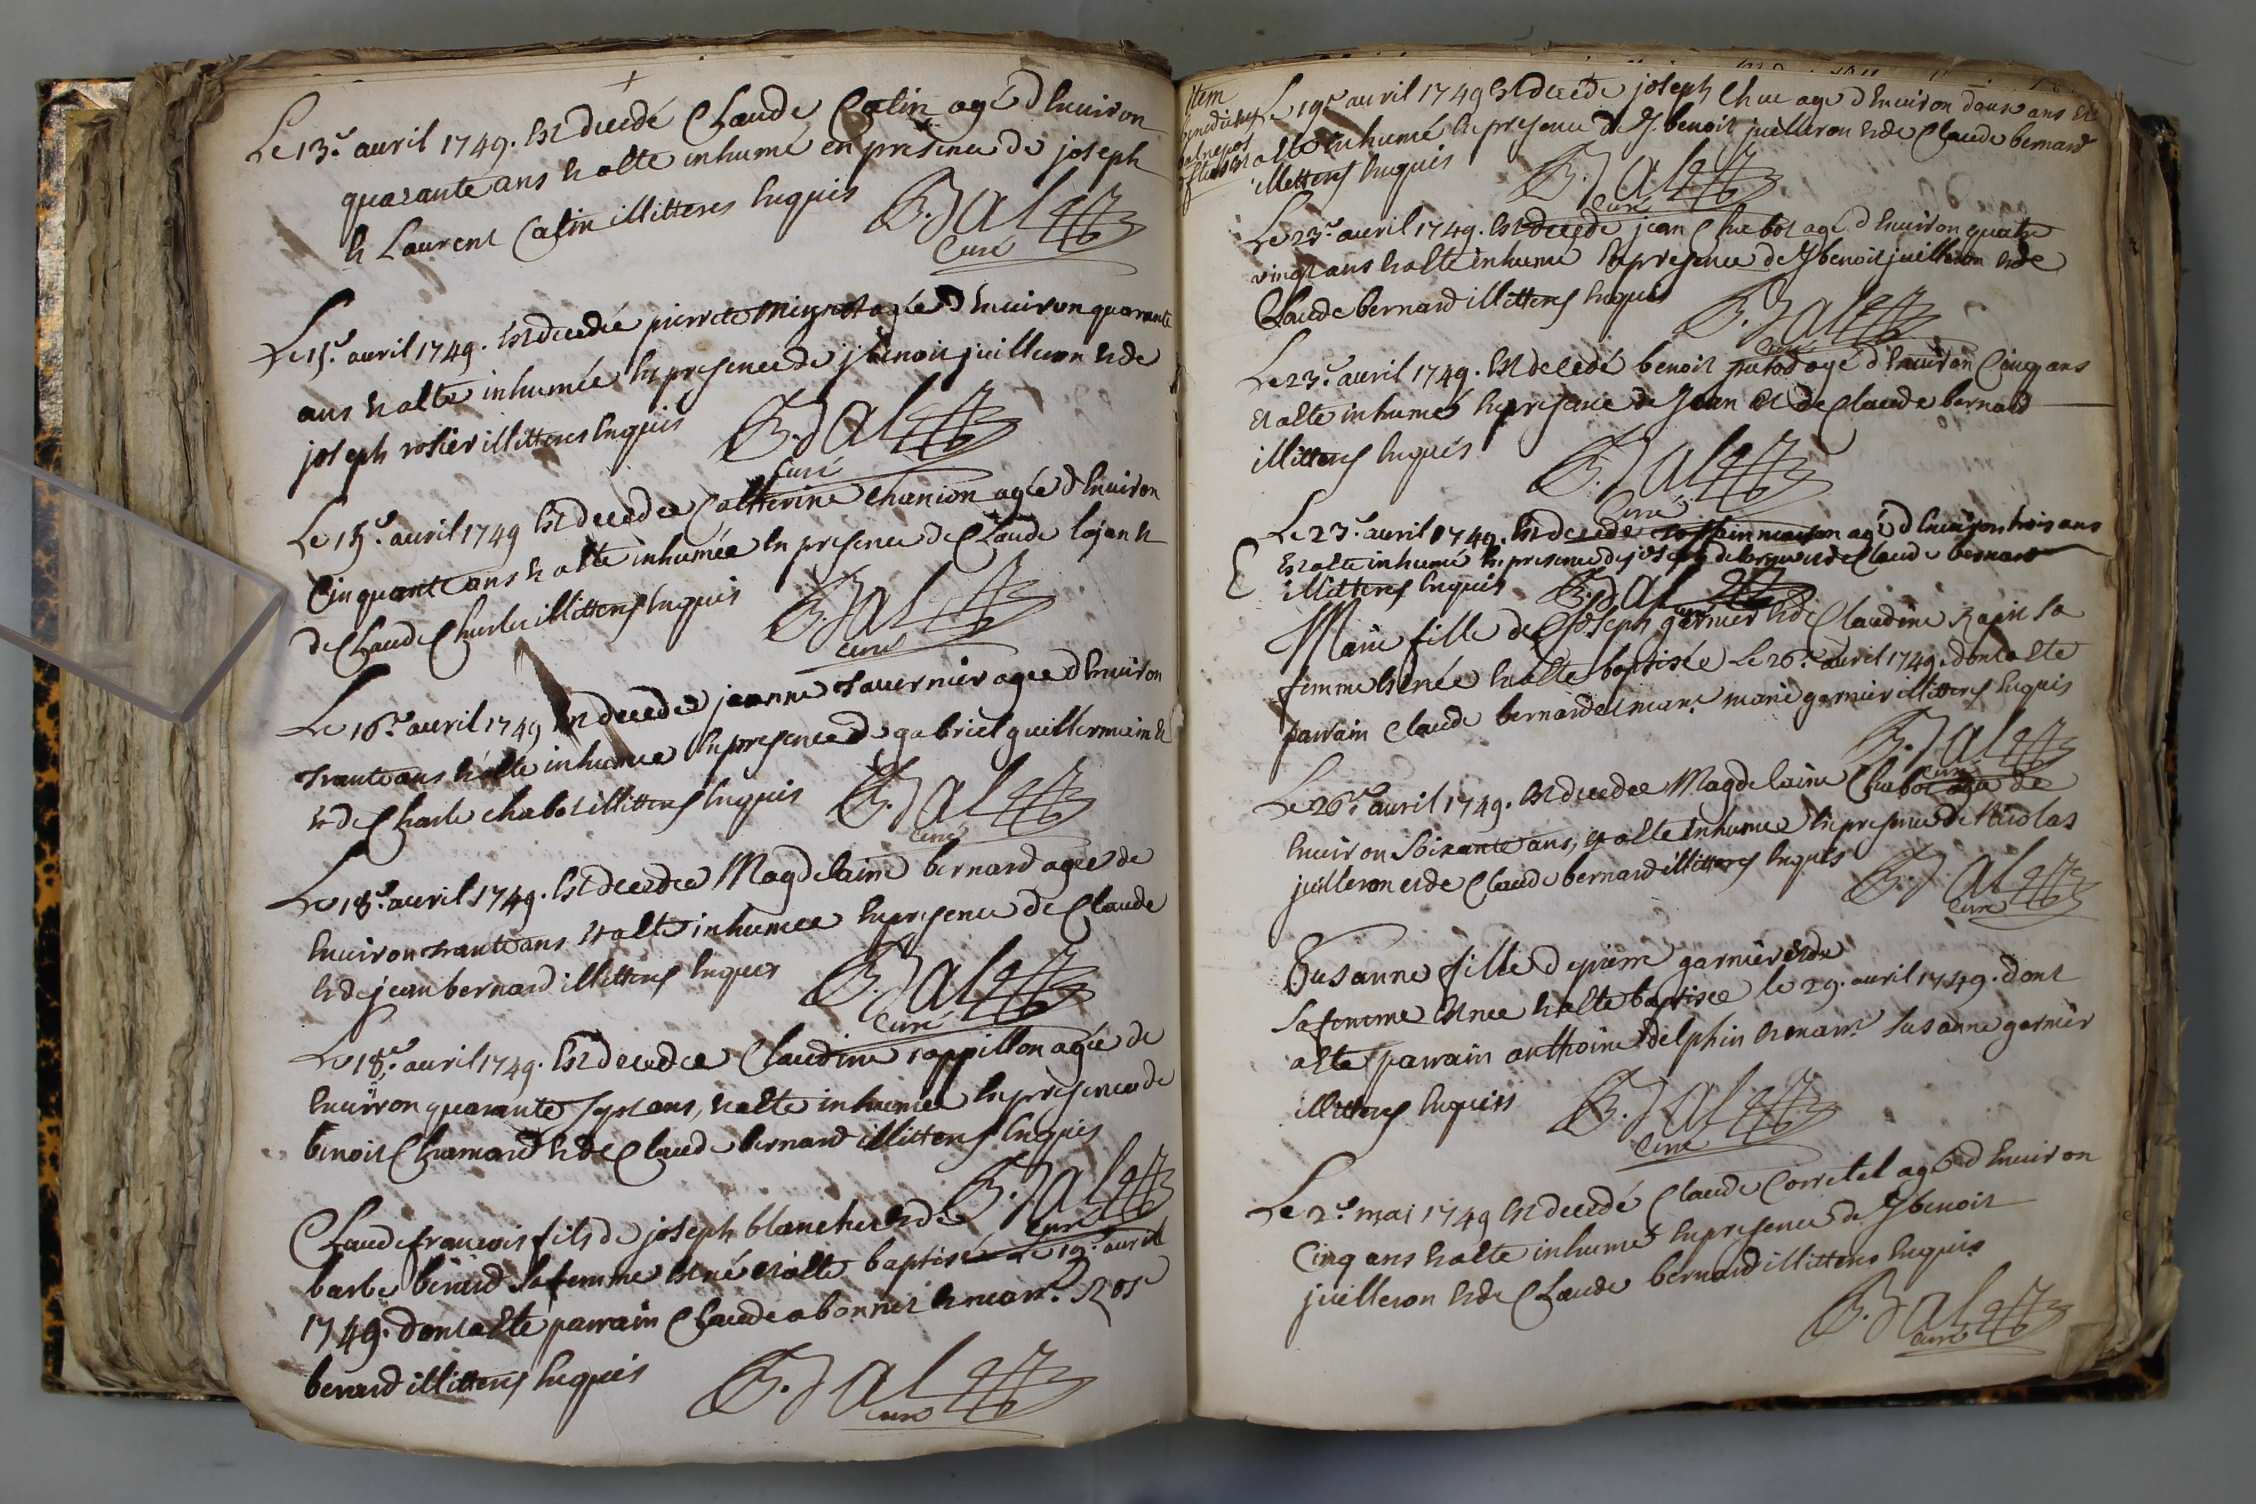 Le 13.e avril 1749. Est decedé Claude Catin agé d'Environ
quarante ans Et a este inhumé en presence de joseph
Et Laurent Catin illitteres Enquis
B. Jal
Curé
Le 15.e avril 1749. Est decedée pierrete Mignot agée d'Environ quarante
ans Et a esté inhumée En presence de j benoit juilleron Et de
joseph rosier illitteres Enquis
B. Jal
Curé
Le 15.e avril 1749 Est decedée Catherine chanion agée d'Environ
Cinquante ans Et a esté inhumée En presence de Claude lajon Et
de Claude Charles illitteres Enquis
B. Jal
curé
Le 16.e avril 1749 Est decedée jeanne Tavernier agée d'Environ
Trante ans Et a esté inhumée En presence de gabriel guillermin Et
Et de Charle chabot illitteres Enquis
B. Jal
curé
Le 18.e avril 1749. Est decedée Magdelaine bernard agée de
Environ trante ans Et a esté inhumee En presence de Claude
Et de jean bernard illitteres Enquis
B. Jal
Curé
Le 18.e avril 1749. Est decedée Claudine rappillon agée de
Environ quarante sept ans, Et a esté inhumée En presence de
benoit Chamard Et de Claude bernard illitteres Enquis
B. Jal
Curé
Claude francois fils de joseph blanchet Et de
barbe berard sa femme Est né Et a esté baptisé Le 19.e avril
1749. dont a esté parrain Claude abonnet Et marr.e
berard illitteres Enquis
B. Jal
curé
Item
Le 19.e avril 1749 Est decedé joseph Chuc agé d'Environ douse ans Et
a esté inhumé En presence de J. benoit juilleron Et de Claude bernard
illitteres Enquis
B. Jal
Curé
Le 23.e avril 1749. Est decedé jean Chabot agé d'Environ quatre
vingt ans Et a esté inhumé En presence de J benoit juilleron Et de
Claude bernard illitteres Enquis
B. Jal
Curé
Le 23.e avril 1749. Est decedé benoit putod agé d'Environ Cinq ans
Et a esté inhumé En presence de Jean Et de Claude bernard
illitteres Enquis
B. Jal
Curé
Le 23.e avril 1749. Est decedé agé d'Environ trois ans
Et a esté inhumé En presence de joseph Et de Claude bernard
illitteres Enquis
B. Jal
curé
Marie fille de joseph garnier Et de Claudine Rapil sa
femme Est née Et a esté baptisée Le 26.e avril 1749. dont a esté
parrain Claude bernard Et marr.e marie garnier illitteres Enquis
B. Jal
Curé
Le 26.e avril 1749. Est decedee Magdelaine Chabot agée de
Environ Soixante ans, Et a esté inhumée En presence de Nicolas
juilleron Et de Claude bernard illitteres Enquis
B. Jal
Curé
Susanne fille de pierre garnier Et de
sa femme Est née Et a esté baptisée le 29. avril 1749. dont
a esté parrain anthoine delphin Et marr.e susanne garnier
illitteres Enquis
B. Jal
Curé
Le 2.e mai 1749 Est decedé Claude Corretel agé d'Environ
Cinq ans Et a esté inhumé En presence de J benoit
juilleron Et de Claude bernard illitteres Enquis
B. Jal
curé